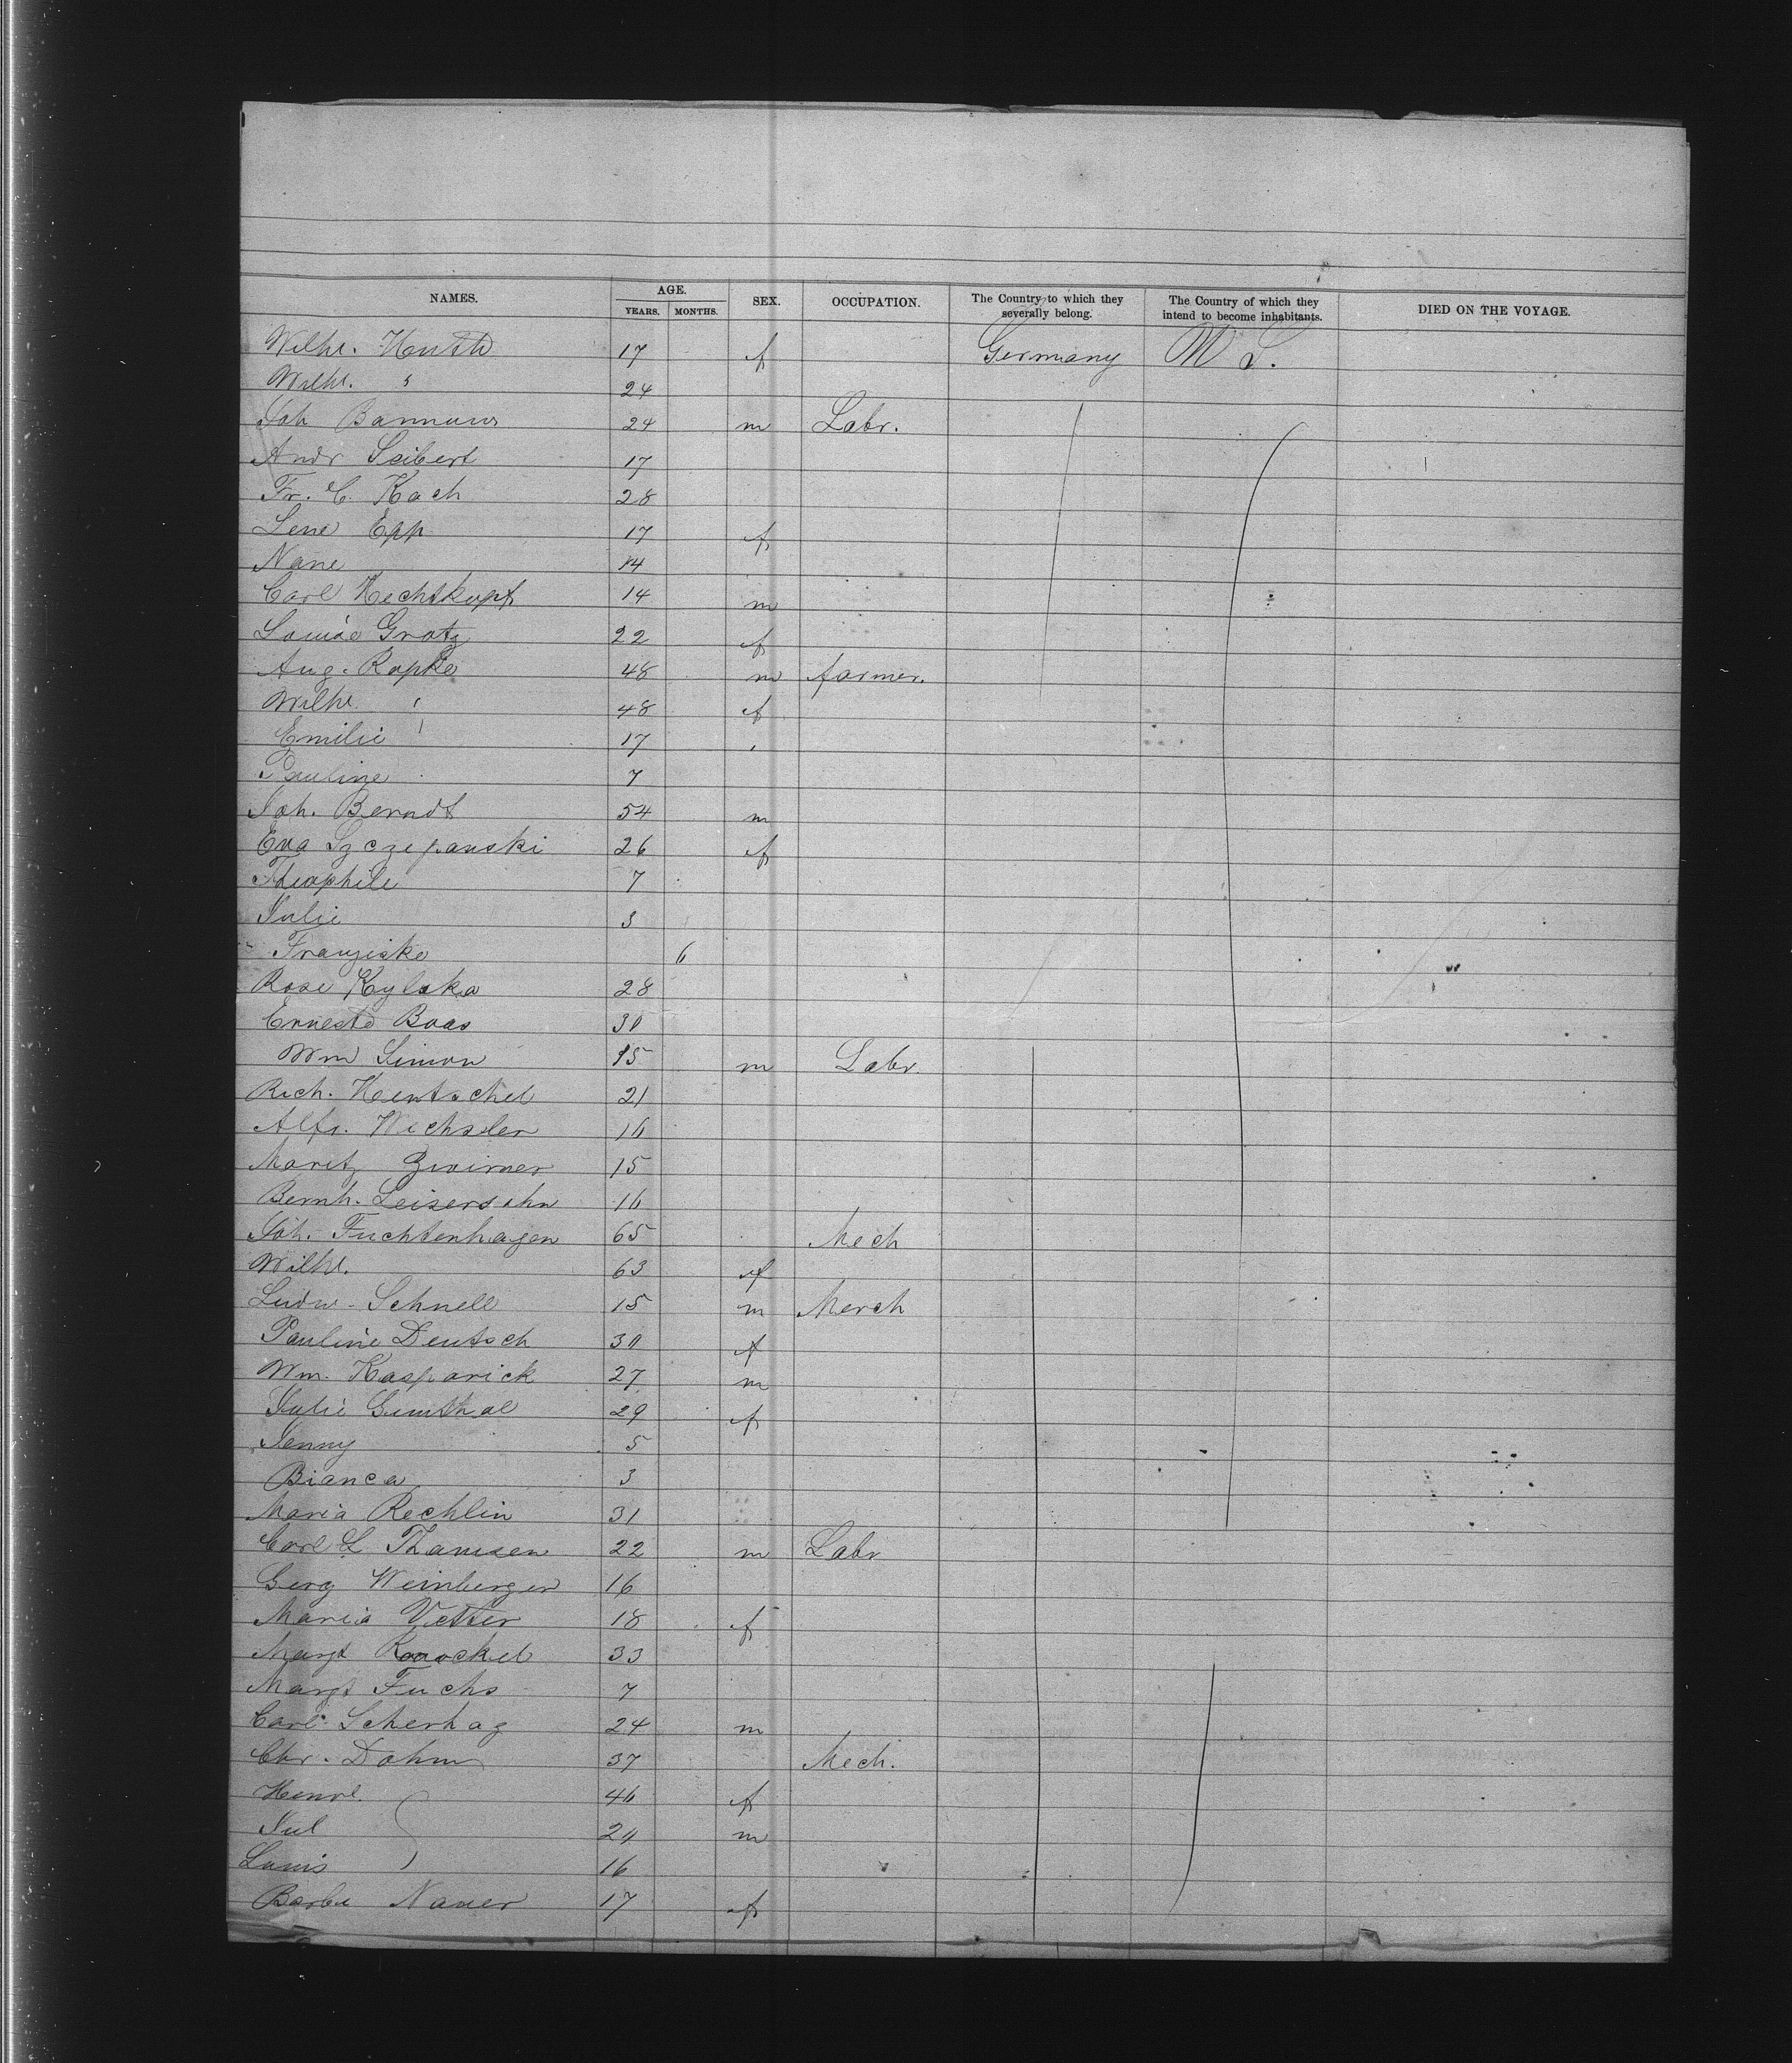 NAMES. AGE. SEX. OCCUPATION. The Country to which they severally belong. The Country of which they intend to become inhabitants. DIED ON THE VOYAGE.
YEARS. MONTHS.
Wilhe. 17 f Germany
Wilhe. " 24
Joh 24 m Labr.
Andr Seibert 17
Fr. C. Koch 28
Lene Epp 17 f
Nane 14
Carl Hechtkopf 14 m
Louise Grotz 22 f
Aug. Ropke 48 m farmer.
Wilhe " 48 f
Emilie " 17 "
Pauline 7
Joh. Berndt 54 m
Eva Szczepanski 26 f
Theophile 7
Julie 3
Franziska 6
Rosa 28
Boas 30
Wm Simon 15 m Labr
Rich. Hentschel 21
Alfr. Wechsler 16
Moritz 15
Bernh. Leisersohn 16
Joh. Fuchtenhagen 65 Mech
Wilhe. 63 f
Ludw. Schnell 15 m Merch
Pauline Deutsch 30 f
Wm. Kasparick 27 m
Julie 29 f
Jenny 5
Bianca 3
Maria Rechlin 31
Carl L Thamsen 22 m Labr
Georg Weinberger 16
Maria Vetter 18 f
Margt 33
Margt Fuchs 7
Carl Scherhag 24 m
Chr. Dohm 37 Mech.
Henre. 46 f
Jul 20 m
Louis 16
Barba Nauer 17 f